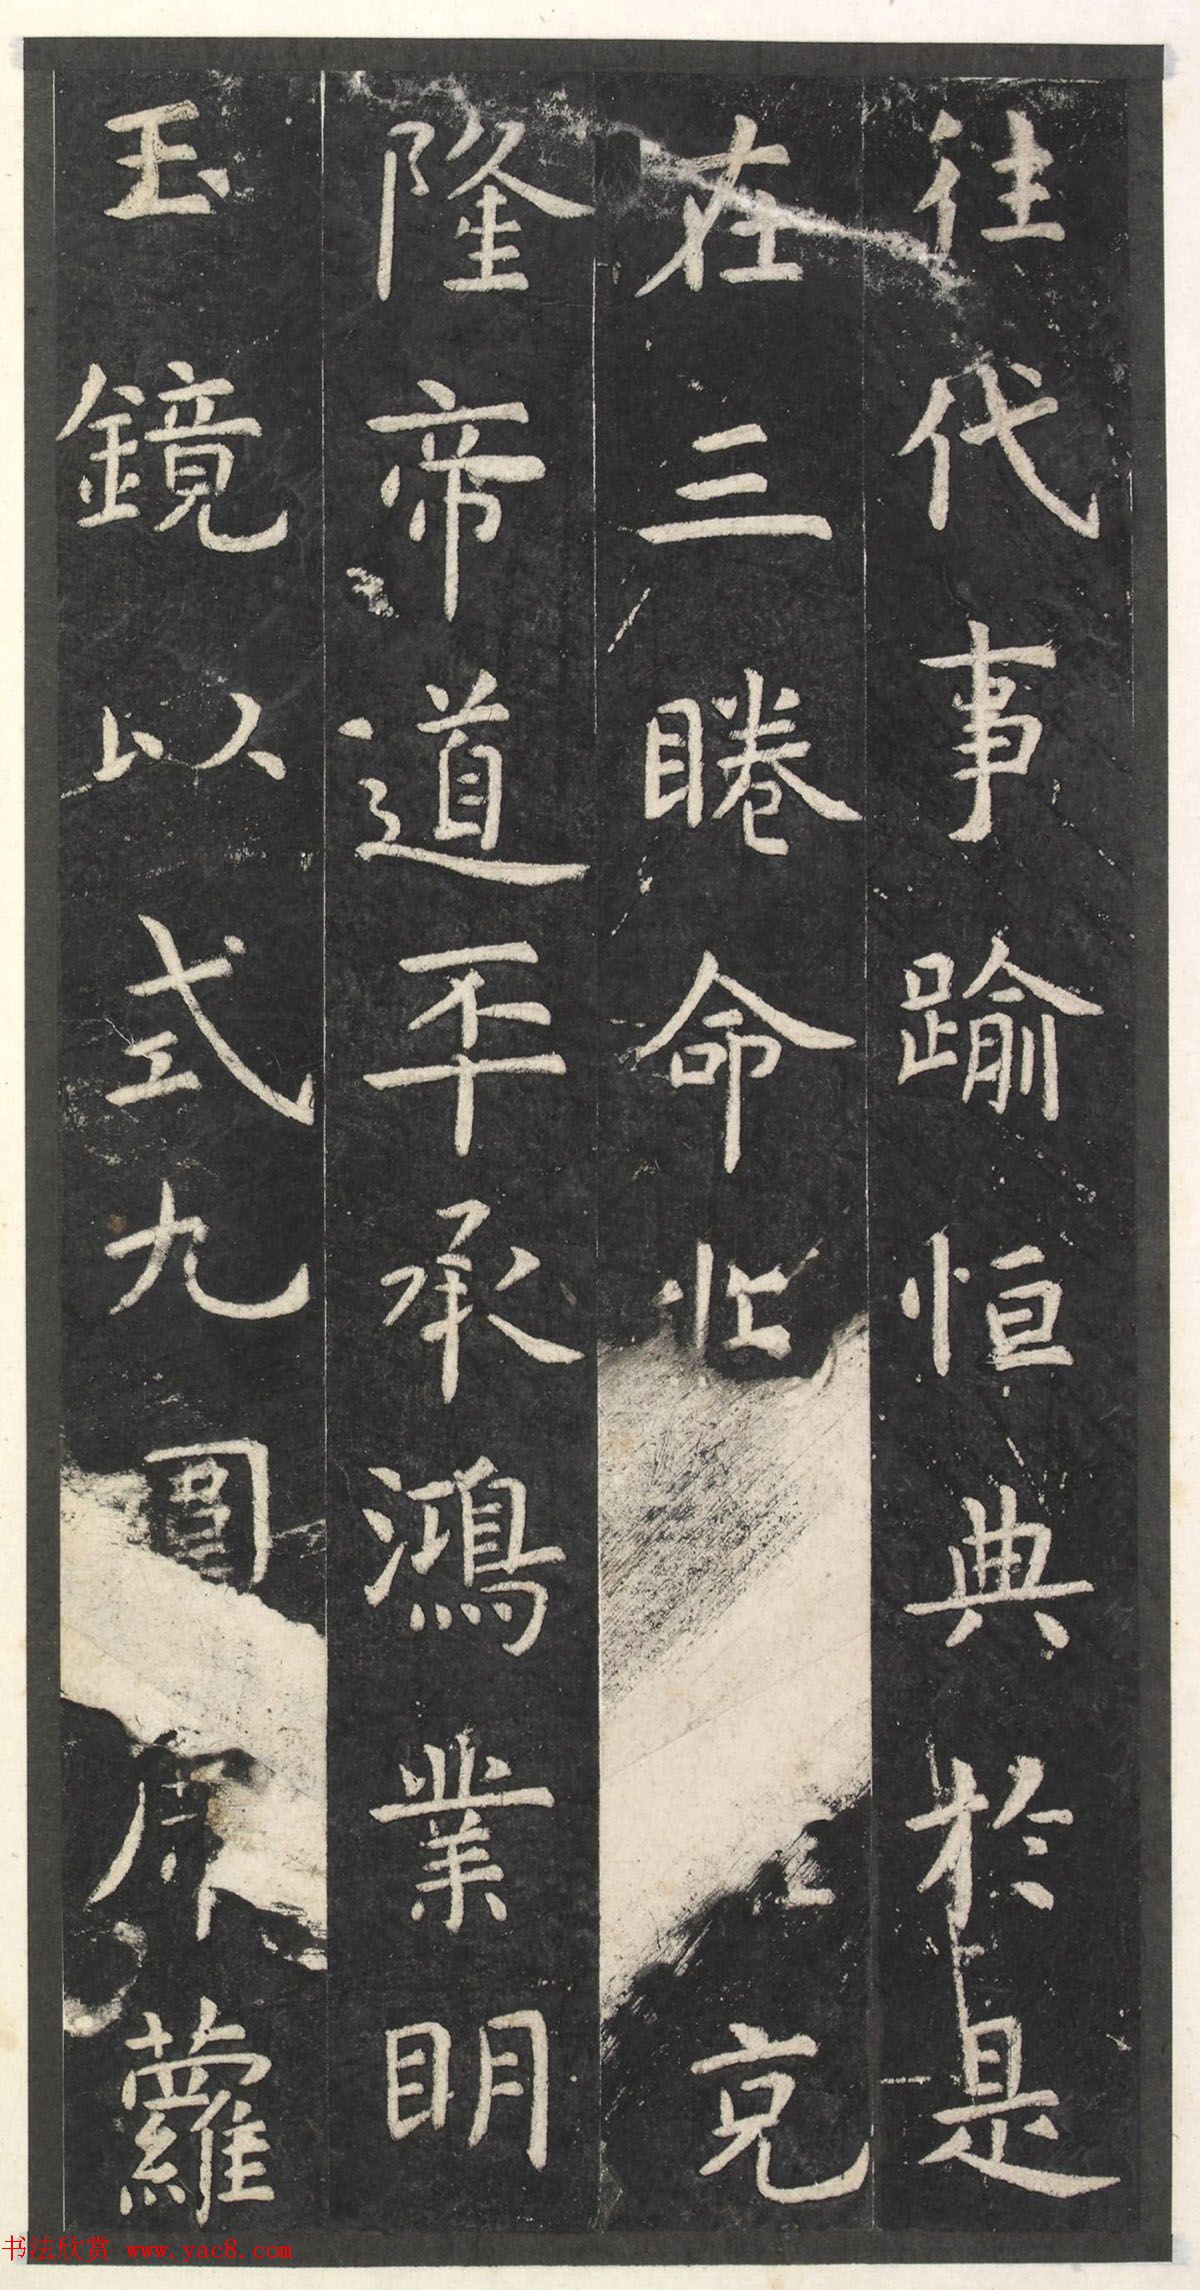 往代事踰恒典於是
在三睠命 克
隆帝道丕承鴻業明
玉鏡以式九圍席蘿
书法欣赏 www.yac8.com